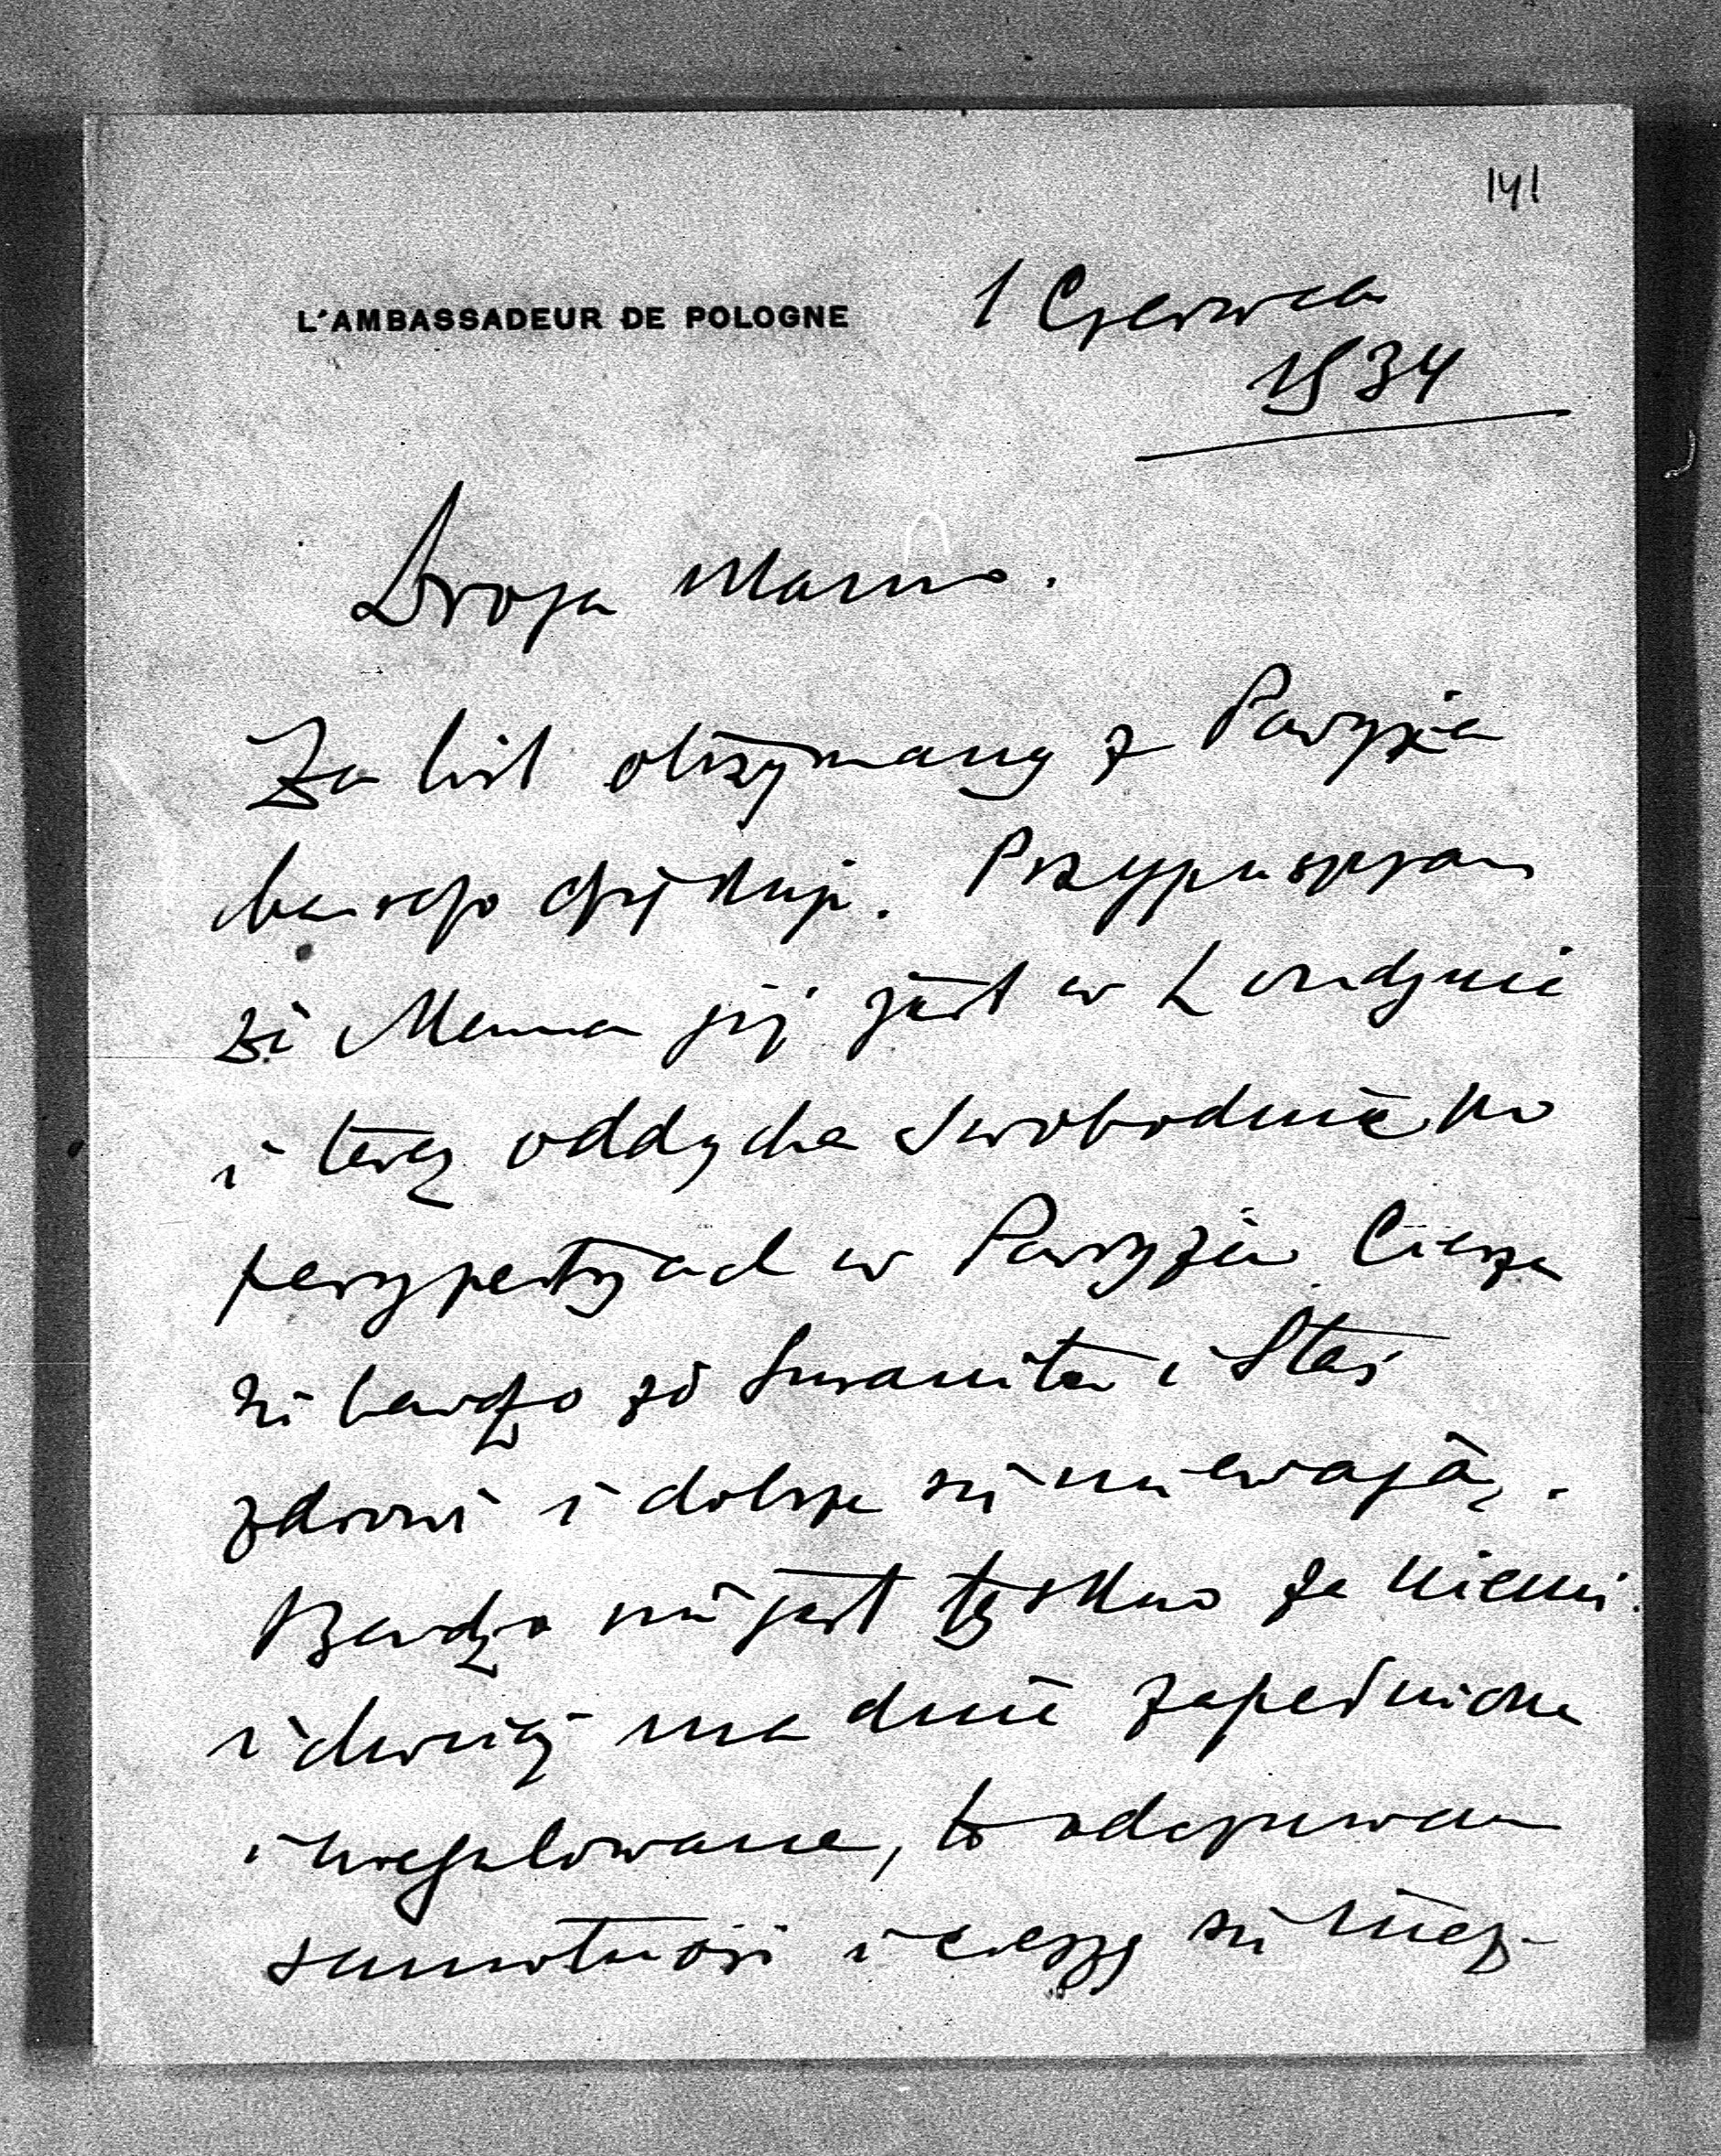 141
L'AMBASSADEUR DE POLOGNE
1 Czerwca
1934
Droga Mamo.
Za list otrzymany z Paryża
bardzo dziękuję. Przypuszczam
że Mama już jest w Londynie
i teraz oddycha swobodnie po
perypetyach w Paryżu. Cieszę
się bardzo że Zuzanita i Staś
zdrowi i dobrze się miewają.
Bardzo mi jest tęskno za niemi
i chociaż ma dnie zapełnione
i uregulowane, to odczuwam
samotność i cieszę się niez-